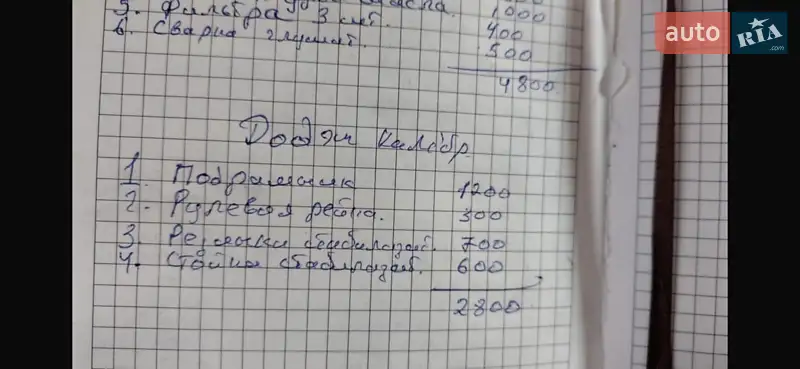 масла. 1000
5. Фильтра 3 шт. 400
6. Сварка глушит. 500
4800
Додж Калибр
1. Подрамник 1200
2. Рулевая рейка. 300
3. Резинки стабилизат. 700
4. Стойки стабилизат. 600
2800
auto RIA .com